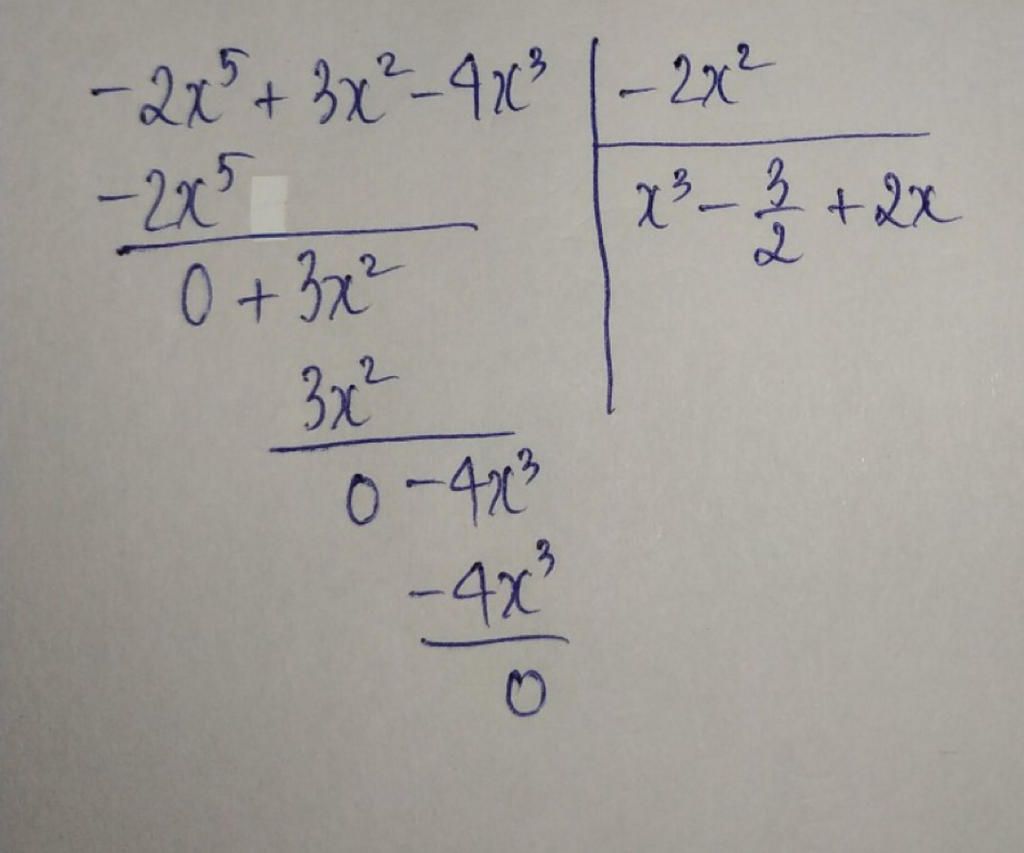 -2x⁵ + 3x² - 4x³ | -2x²
-2x⁵ | x³ - 3/2 + 2x
0 + 3x²
3x²
0 - 4x³
-4x³
0